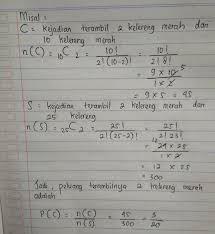 Misal :
C = kejadian terambil 2 kelereng merah dari
10 kelereng merah
n(C) = 10C2 = 10! / 2!(10-2)! = 10! / 2!8!
= 9 x 10 5 / 1 x 2
= 9 x 5 = 45
S : kejadian terambil 2 kelereng merah dari
25 kelereng
n(S) = 25C2 = 25! / 2!(25-2)! = 25! / 2!23!
= 24 x 25 / 1 x 2
= 12 x 25
= 300
Jadi, peluang terambilnya 2 kelereng merah
adalah
P(C) = n(C) / n(S) = 45 / 300 = 3 / 20